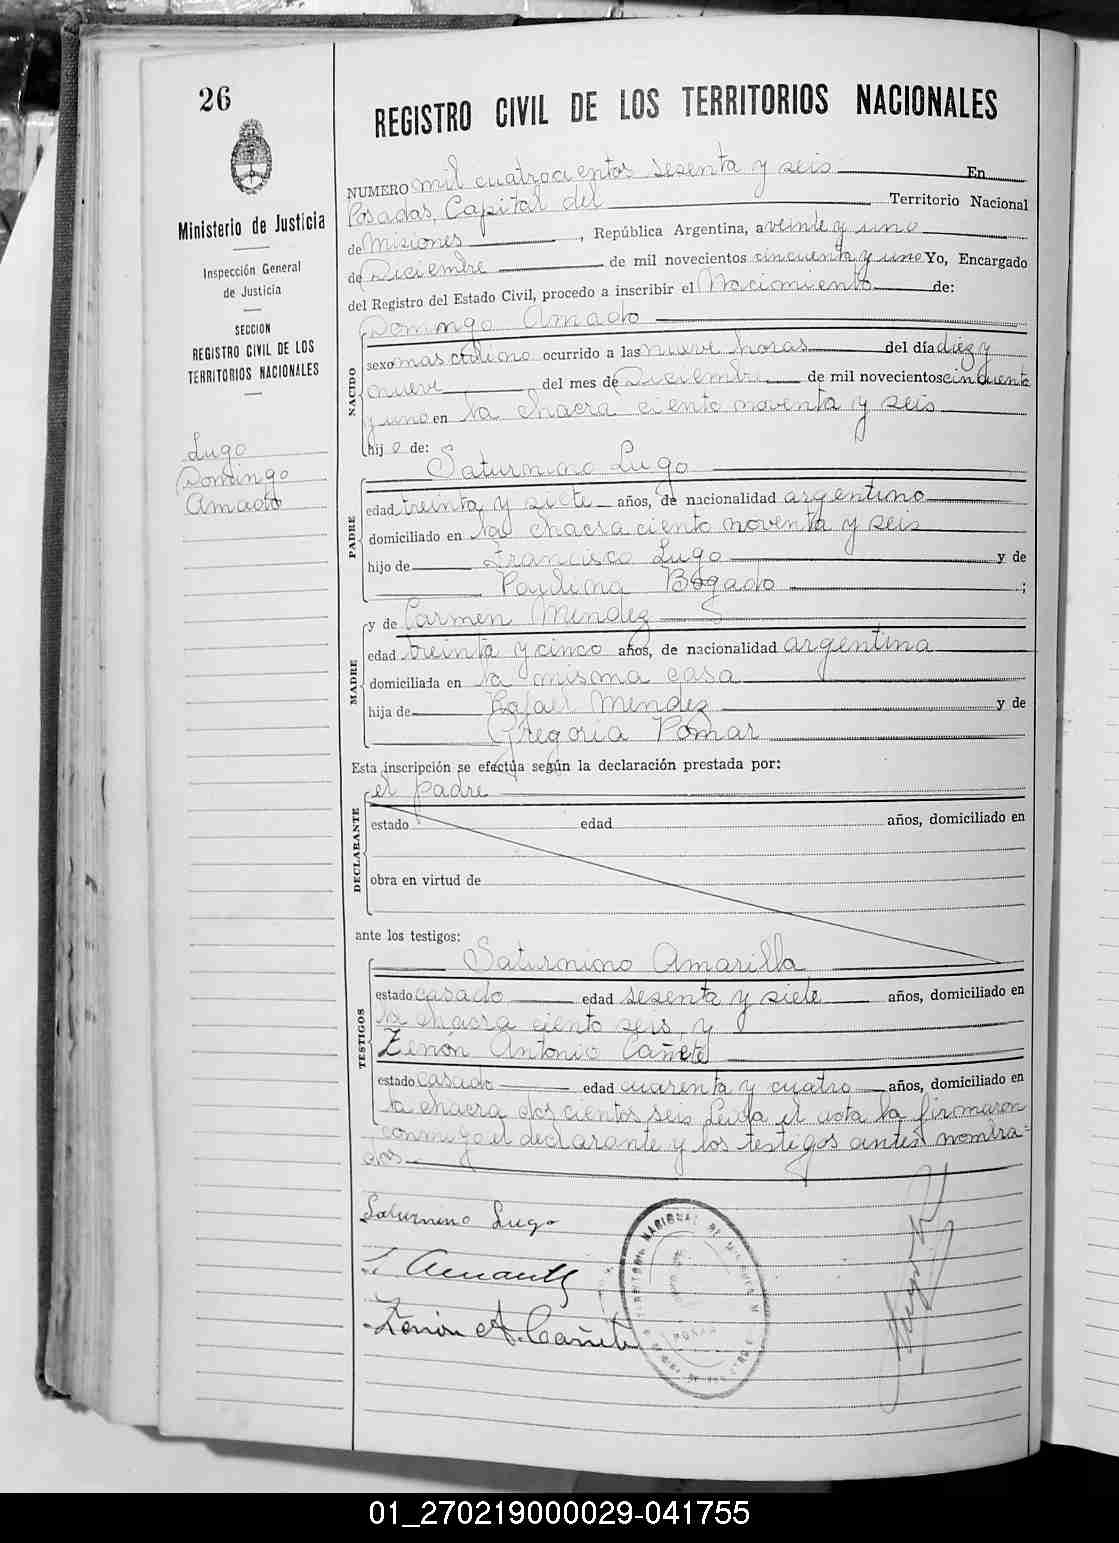 26
REGISTRO CIVIL DE LOS TERRITORIOS NACIONALES
Ministerio de Justicia
Inspección General
de Justicia
SECCION
REGISTRO CIVIL DE LOS
TERRITORIOS NACIONALES
Lugo
Domingo
Amado
NUMERO mil cuatrocientos sesenta y seis En
Posadas, Capital del Territorio Nacional
de Misiones, República Argentina, a veinte y uno
de Diciembre de mil novecientos cincuenta y uno Yo, Encargado
del Registro del Estado Civil, procedo a inscribir el Nacimiento de:
Domingo Amado
NACIDO
sexo masculino ocurrido a las nueve horas del día diez y
nueve del mes de Diciembre de mil novecientos cincuenta
y uno en la chacra ciento noventa y seis
hijo de:
Saturnino Lugo
PADRE
edad treinta y siete años, de nacionalidad argentino
domiciliado en la chacra ciento noventa y seis
hijo de Francisco Lugo y de
Paulina Bogado ;
y de Carmen Mendez
MADRE
edad treinta y cinco años, de nacionalidad argentina
domiciliada en la misma casa
hija de Rafael Mendez y de
Gregoria Pomar
Esta inscripción se efectúa según la declaración prestada por:
el padre
DECLARANTE
estado edad años, domiciliado en
obra en virtud de
ante los testigos:
Saturnino Amarilla
TESTIGOS
estado casado edad sesenta y siete años, domiciliado en
la chacra ciento seis y
Zenón Antonio Cañete
estado casado edad cuarenta y cuatro años, domiciliado en
la chacra dos cientos seis Leida el acta la firmaron
conmigo el declarante y los testigos antes nombra=
dos
Saturnino Lugo
S Amarilla
Zenón A. Cañete
TERRITORIO NACIONAL DE MISIONES
01_270219000029-041755